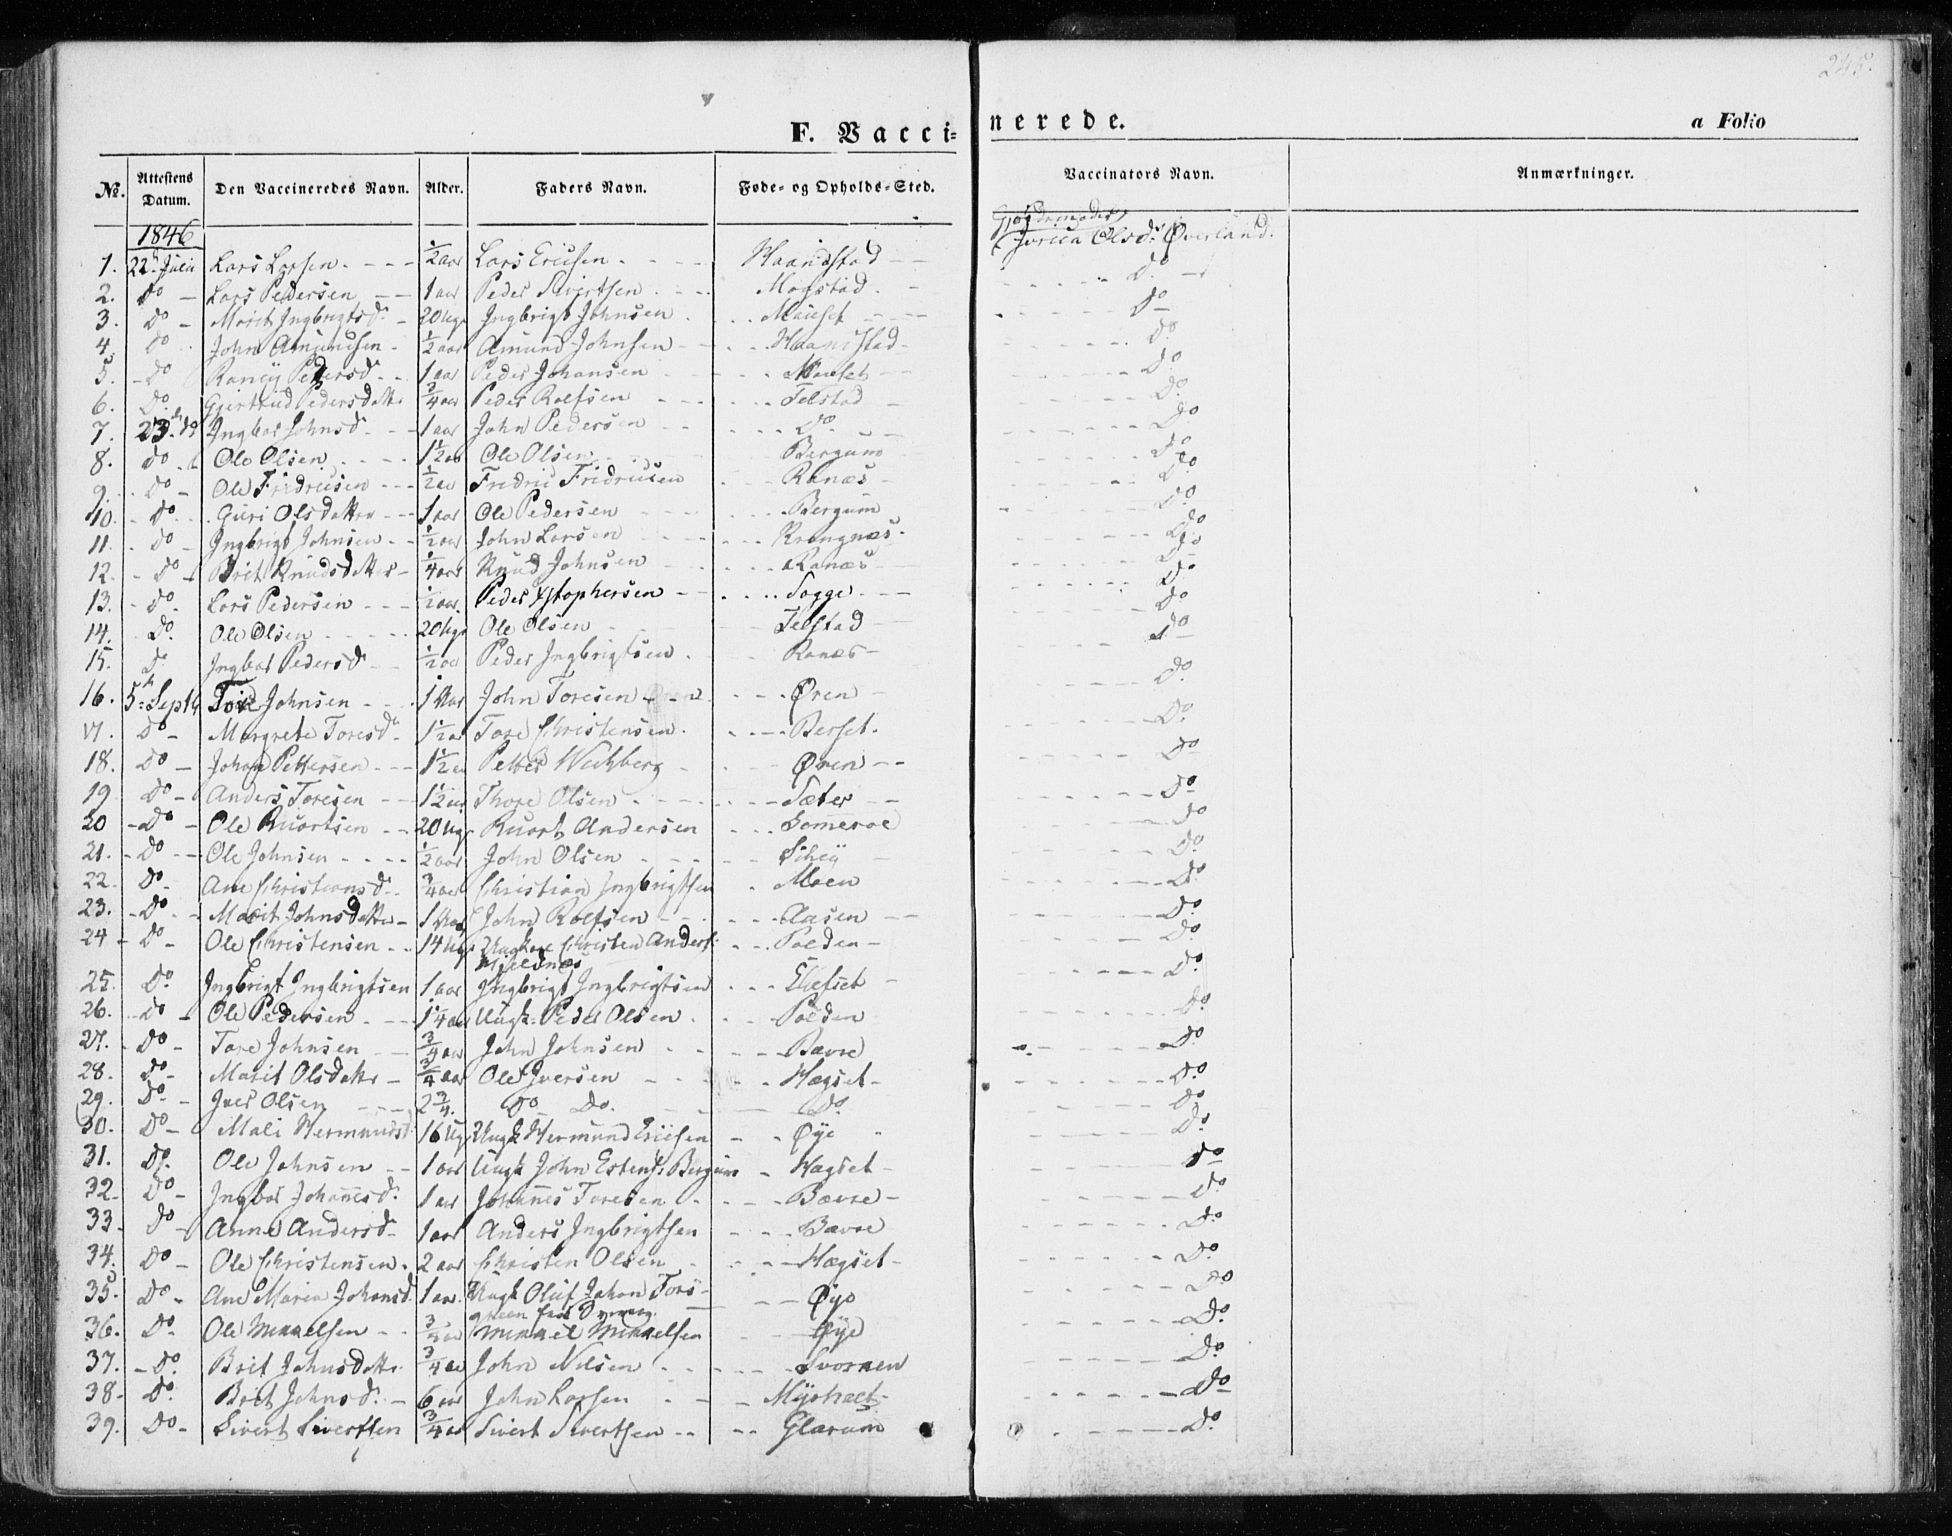 245.
F. Vaccinerede.
a Folio
No. Attestens Datum. Den Vaccineredes Navn. Alder. Faders Navn. Føde- og Opholds-Sted. Vaccinators Navn. Anmærkninger.
1846
Olsdr Øverland.
1. 22 Julii Lars Larsen 1/2 aar Lars Ericsen Haandstad Do
2. Do Lars Pedersen 1 aar Peder Sivertsen Mogstad Do
3. Do Marit Ingbrigtsd. 20 Ug. Ingbrigt Johnsen Mauset Do
4. Do John Amundsen 1/2 aar Amund Johnsen Haandstad Do
5. Do Pedersd. 1 aar Peder Johansen Mauset Do
6. Do Gjertrud Pedersdatter 3/4 aar Peder Rolfsen Telstad Do
7. 23 Ingbor Johnsd. 1 aar John Pedersen Do Do
8. Do Ole Olsen 1 1/2 aar Ole Olsen Bergum Do
9. Do Ole Fridricsen 1/2 aar Fridric Fridricsen Ranæs Do
10. Do Guri Olsdatter 1 aar Ole Pedersen Bergum Do
11. Do Ingbrigt Johnsen 1/2 aar John Larsen Krangnæs Do
12. Do Brit Knudsdatter 1/4 aar Knud Johnsen Ranæs Do
13. Do Lars Pedersen 1/2 aar Peder Xstophersen Sogge Do
14. Do Ole Olsen 20 Ug. Ole Olsen Telstad Do
15. Do Ingbor Pedersd. 1/2 aar Peder Ingbrigtsen Ranæs Do
16. 5 Septb Tore Johnsen 1 Aar John Toresen Øren Do
17. Do Margrete Toresd. 1 1/2 aar Tore Christensen Berset Do
18. Do Johan Pettersen 1 1/2 aar Petter Wichberg Øren Do
19 Do Anders Toresen 1 1/2 aar Thore Olsen Sæter Do
20 Do Ole Ruartsen 20 Ug. Ruart Andersen Someroe Do
21. Do Ole Johnsen 1/2 aar John Olsen Do
22. Do Ane Christiansd. 3/4 aar Christian Ingbrigtsen Moen Do
23. Do Marit Johnsdatter 1 Aar John Rolfsen Aasen Do
24 Do Ole Christensen 14 Ug. Ungkarl Christen Anders. Polden Do
25. Do Ingbrigt Ingbrigtsen 1 aar Ingbrigt Ingbrigtsen Do
26. Do Ole Pedersen 1 1/4 aar Ungk. Peder Olsen Polden Do
27. Do Tore Johnsen 3/4 aar John Johnsen Bævre Do
28. Do Marit Olsdatter 3/4 aar Ole Iversen Hægset Do
29. Do Iver Olsen 2 3/4 Do Do Do Do
30. Do Mali Hermundsd. 16 Ug. Ungk Hermund Ericsen Øye Do
31. Do Ole Johnsen 1 aar Ungk John Estens. Bergum Hægset Do
32 Do Ingbor Johannesd. 1 aar Johannes Toresen Bævre Do
33 Do Anne Andersd. 1 aar Anders Ingbrigtsen Bævre Do
34. Do Ole Christensen 2 aar Christen Olsen Hægset Do
35. Do Ane Maria Johansd. 1 aar. Ungk Oluf Johan Fors-
green Øye Do
36. Do Ole Mikkelsen 3/4 aar Mikkel Mikkelsen Øye Do
37. Do Brit Johnsdatter 3/4 aar John Nilsen Svorken Do
38 Do Brit Johnsd. 6 aar John Larsen Do
39. Do Sivert Sivertsen 3/4 aar Sivert Sivertsen Glærum Do